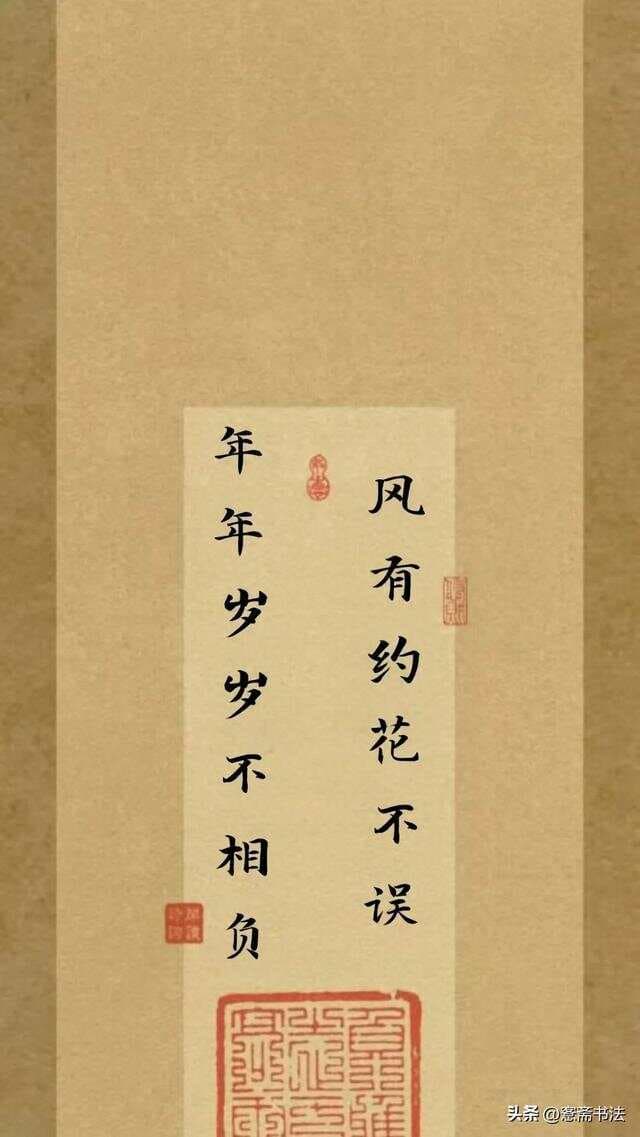 风有约花不误
年年岁岁不相负
头条 @窓斋书法